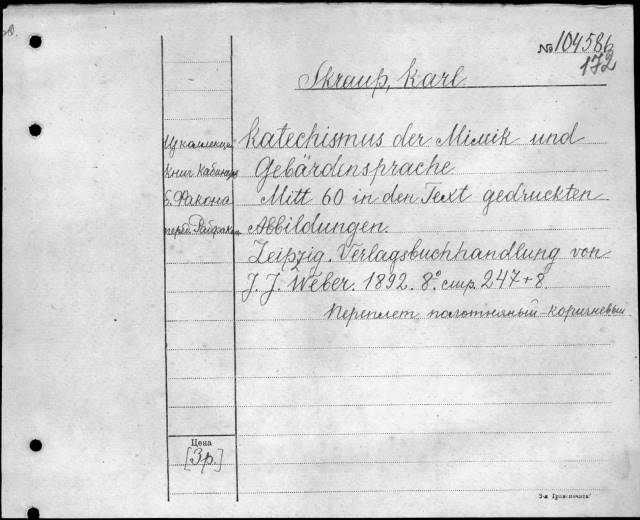 № 104586
172
Skraup, Karl.
Из коллекции
книг Кабинета
б. Факона
Katechismus der Mimik und
Gebärdensprache
Mitt 60 in den Text gedruckten
Abbildungen.
Leipzig. Verlagsbuchhandlung von
J. J. Weber. 1892. 8° стр. 247+8.
Переплет полотняный-коричневый
Цена
[3р.]